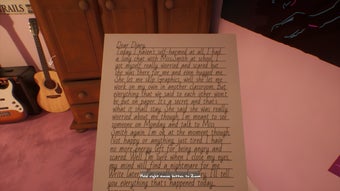 RAILS
Dear Diary,
Today I haven't self-harmed at all. I had
a long chat with Miss Smith at school. I
got myself really worried and scared but
she was there for me and even hugged me.
She let me skip graphics, well she let me
work on my own in another classroom. But
everything that we said to each other won't
be put on paper. It's a secret and that's
what it shall stay. She said she was really
worried about me though. I'm meant to see
someone on Monday and talk to Miss
Smith again. I'm ok at the moment though.
Not happy or anything, just tired. I have
no more energy left for being angry and
scared. Well I'm sure when I close my eyes,
my mind will find a nightmare for me.
Write later I'll tell
you everything that's happened today.
Hold right mouse button to Zoom